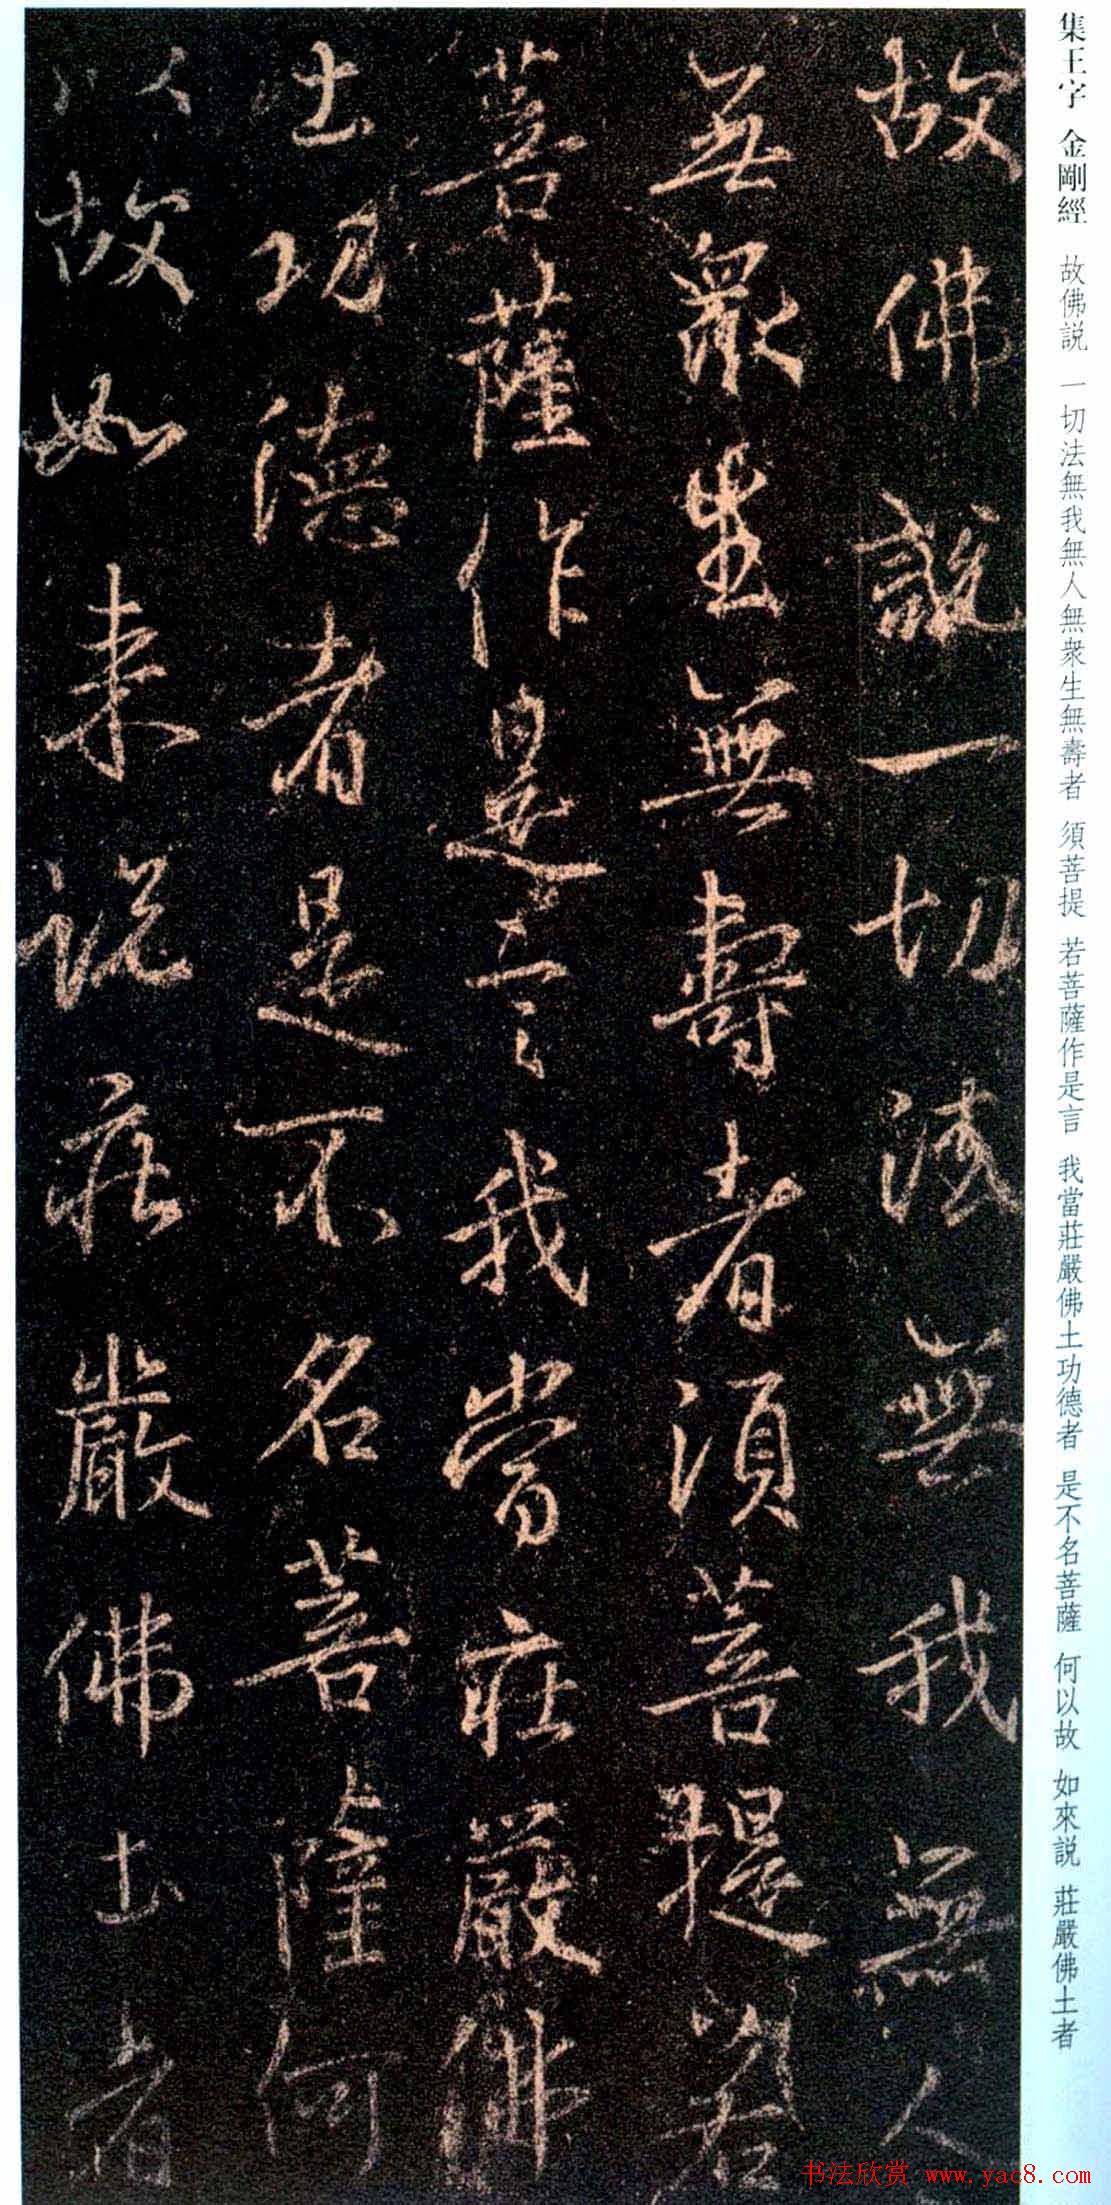 集王字 金剛經 故佛説 一切法無我無人無衆生無壽者 須菩提 若菩薩作是言 我當莊嚴佛土功德者 是不名菩薩 何以故 如來説 莊嚴佛土者
故佛説一切法無我無人
無衆生無壽者須菩提若
菩薩作是言我當莊嚴佛
土功德者是不名菩薩何
以故如来説莊嚴佛土者
书法欣赏 www.yac8.com